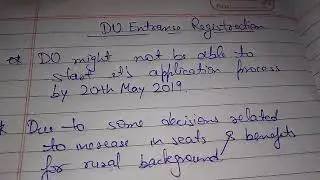 DU Entrance Registration
DU might not be able to
start it's application process
by 20th May 2019.
Due to some decisions related
to increase in seats & benefits
for rural background.